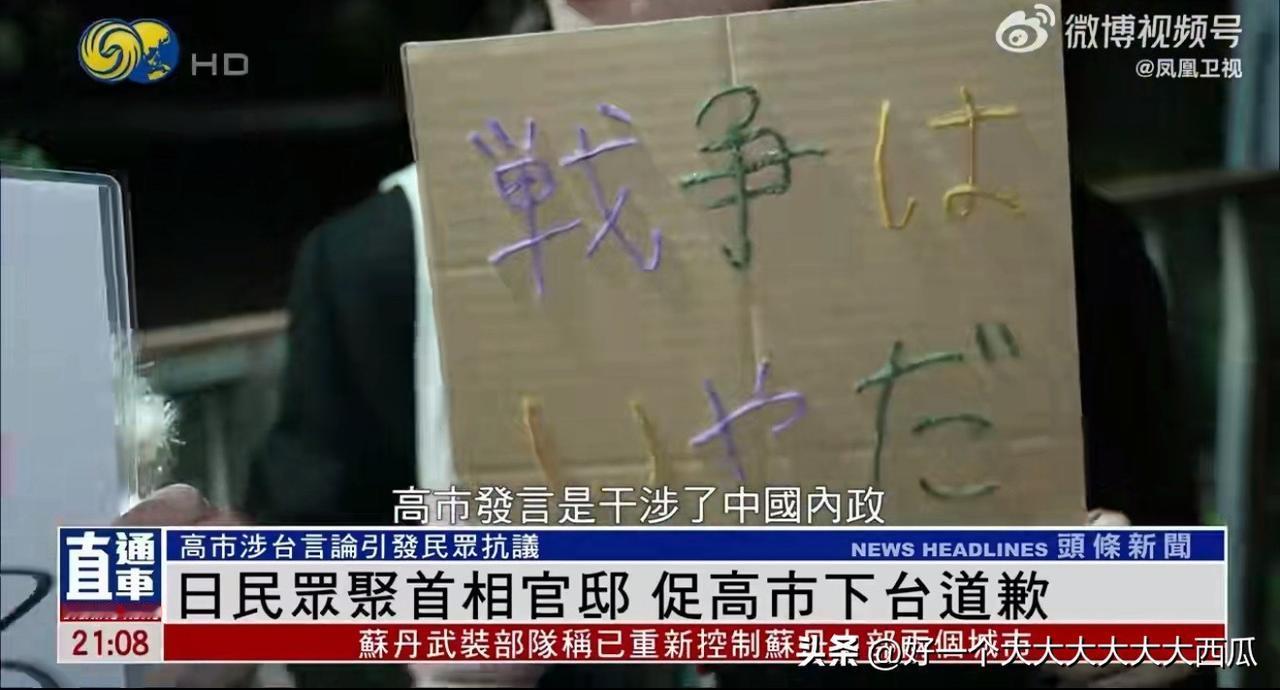 HD
微博视频号
@凤凰卫视
戦争は
いやだ
高市發言是干涉了中國內政
直通車
高市涉台言論引發民眾抗議
NEWS HEADLINES 頭條新聞
日民眾聚首相官邸 促高市下台道歉
21:08
蘇丹武裝部隊稱已重新控制蘇
部兩個城市
头条 @好一个大大大大大大西瓜